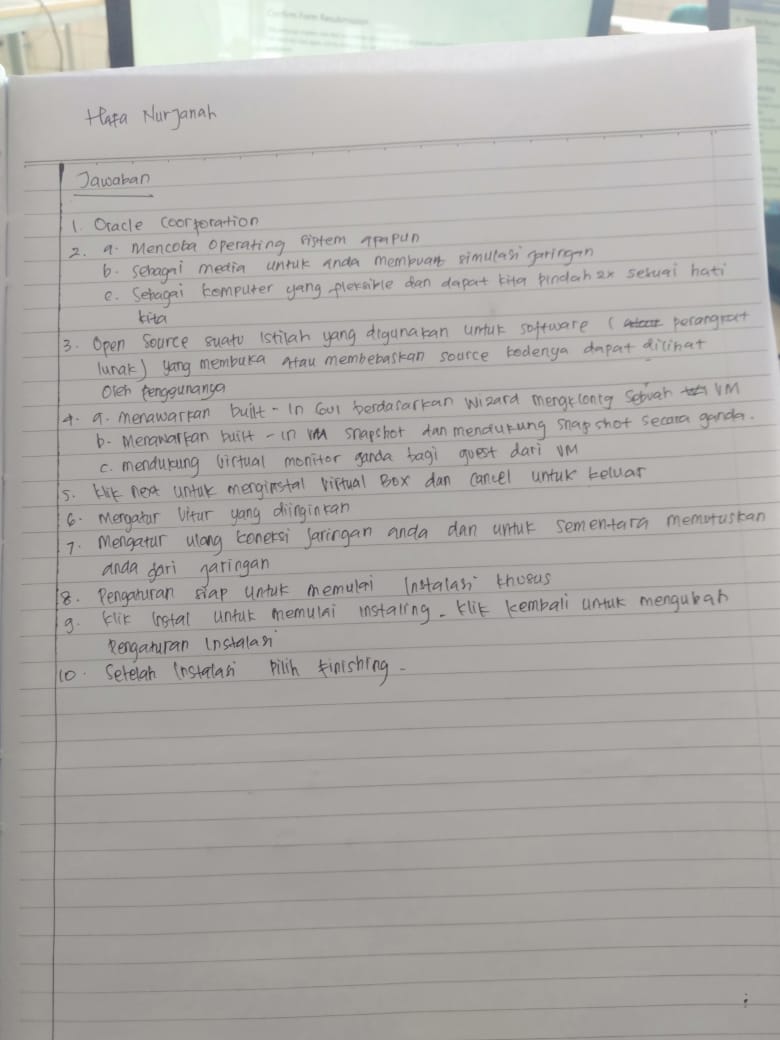 Hafa Nurjanah
Jawaban
1. Oracle Coorporation
2. a. Mencoba Operating sistem apapun
b. sebagai media untuk anda membuat simulasi jaringan
c. Sebagai komputer yang pleksible dan dapat kita pindah 2x sesuai hati
kita
3. Open Source suatu istilah yang digunakan untuk software ( perangkat
lunak) yang membuka atau membebaskan source kodenya dapat dilihat
Oleh penggunanya
4. a. menawarkan built - In GUI berdasarkan Wizard mengkloning Sebuah VM
b. Menawarkan built - in VM snapshot dan mendukung snapshot secara ganda.
c. mendukung Virtual monitor ganda bagi guest dari VM
5. klik next untuk menginstal Virtual Box dan cancel untuk keluar
6. Mengatur Vitur yang diinginkan
7. Mengatur ulang koneksi jaringan anda dan untuk sementara memutuskan
anda dari jaringan
8. Pengaturan siap untuk memulai Instalasi khusus
9. klik Instal untuk memulai instaling. klik kembali untuk mengubah
Pengaturan Instalasi
10. Setelah Instalasi pilih finishing.